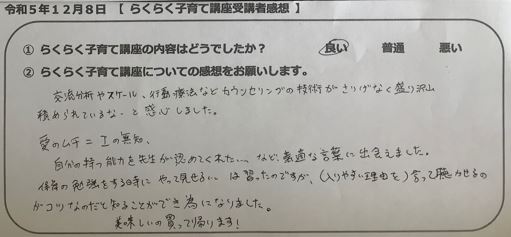 令和5年12月8日 【 らくらく子育て講座受講者感想 】
① らくらく子育て講座の内容はどうでしたか? 良い 普通 悪い
② らくらく子育て講座についての感想をお願いします。
交流分析やスケール、行動療法などカウンセリングの技術がさりげなく盛り沢山
積められているな、と感心しました。
愛のムチ = Iの無知、
自分の持つ能力を先生が認めてくれた…、など、素適な言葉に出会えました。
保育の勉強をする時に やって見せる… は習ったのですが、(入りやすい理由を)言って聴かせるの
がコツなのだと知ることができ為になりました。
美味しいの買って帰ります!